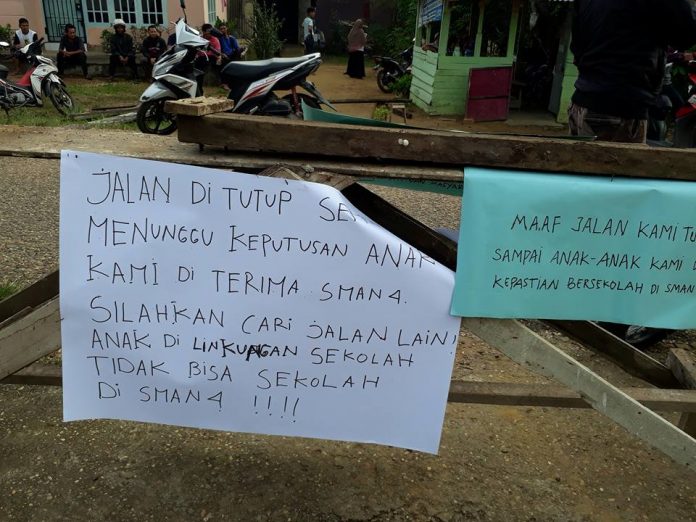 JALAN DI TUTUP SE
MENUNGGU KEPUTUSAN ANAK
KAMI DI TERIMA SMAN 4.
SILAHKAN CARI JALAN LAIN!
ANAK DI LINKUNGAN SEKOLAH
TIDAK BISA SEKOLAH
DI SMAN 4 !!!!
MAAF JALAN KAMI TU
SAMPAI ANAK-ANAK KAMI D
KEPASTIAN BERSEKOLAH DI SMAN